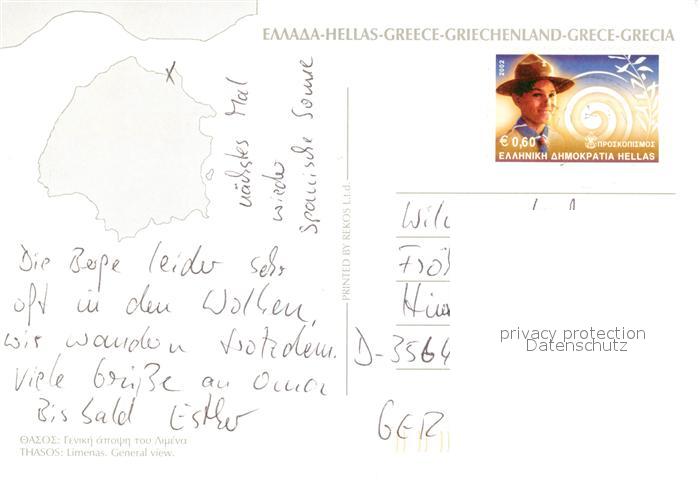 ΕΛΛΑΔΑ-HELLAS-GREECE-GRIECHENLAND-GRECE-GRECIA
2002
€ 0,60
ΠΡΟΣΚΟΠΙΣΜΟΣ
ΕΛΛΗΝΙΚΗ ΔΗΜΟΚΡΑΤΙΑ HELLAS
x
nächstes Mal
wieder
spanische Sonne
PRINTED BY REKOS Ltd.
Die Berge leider sehr
oft in den Wolken,
wir wandern trotzdem.
Viele Grüße an Oma
Bis bald Esther
D-3564
GER
privacy protection
Datenschutz
ΘΑΣΟΣ: Γενική άποψη του Λιμένα
THASOS: Limenas. General view.